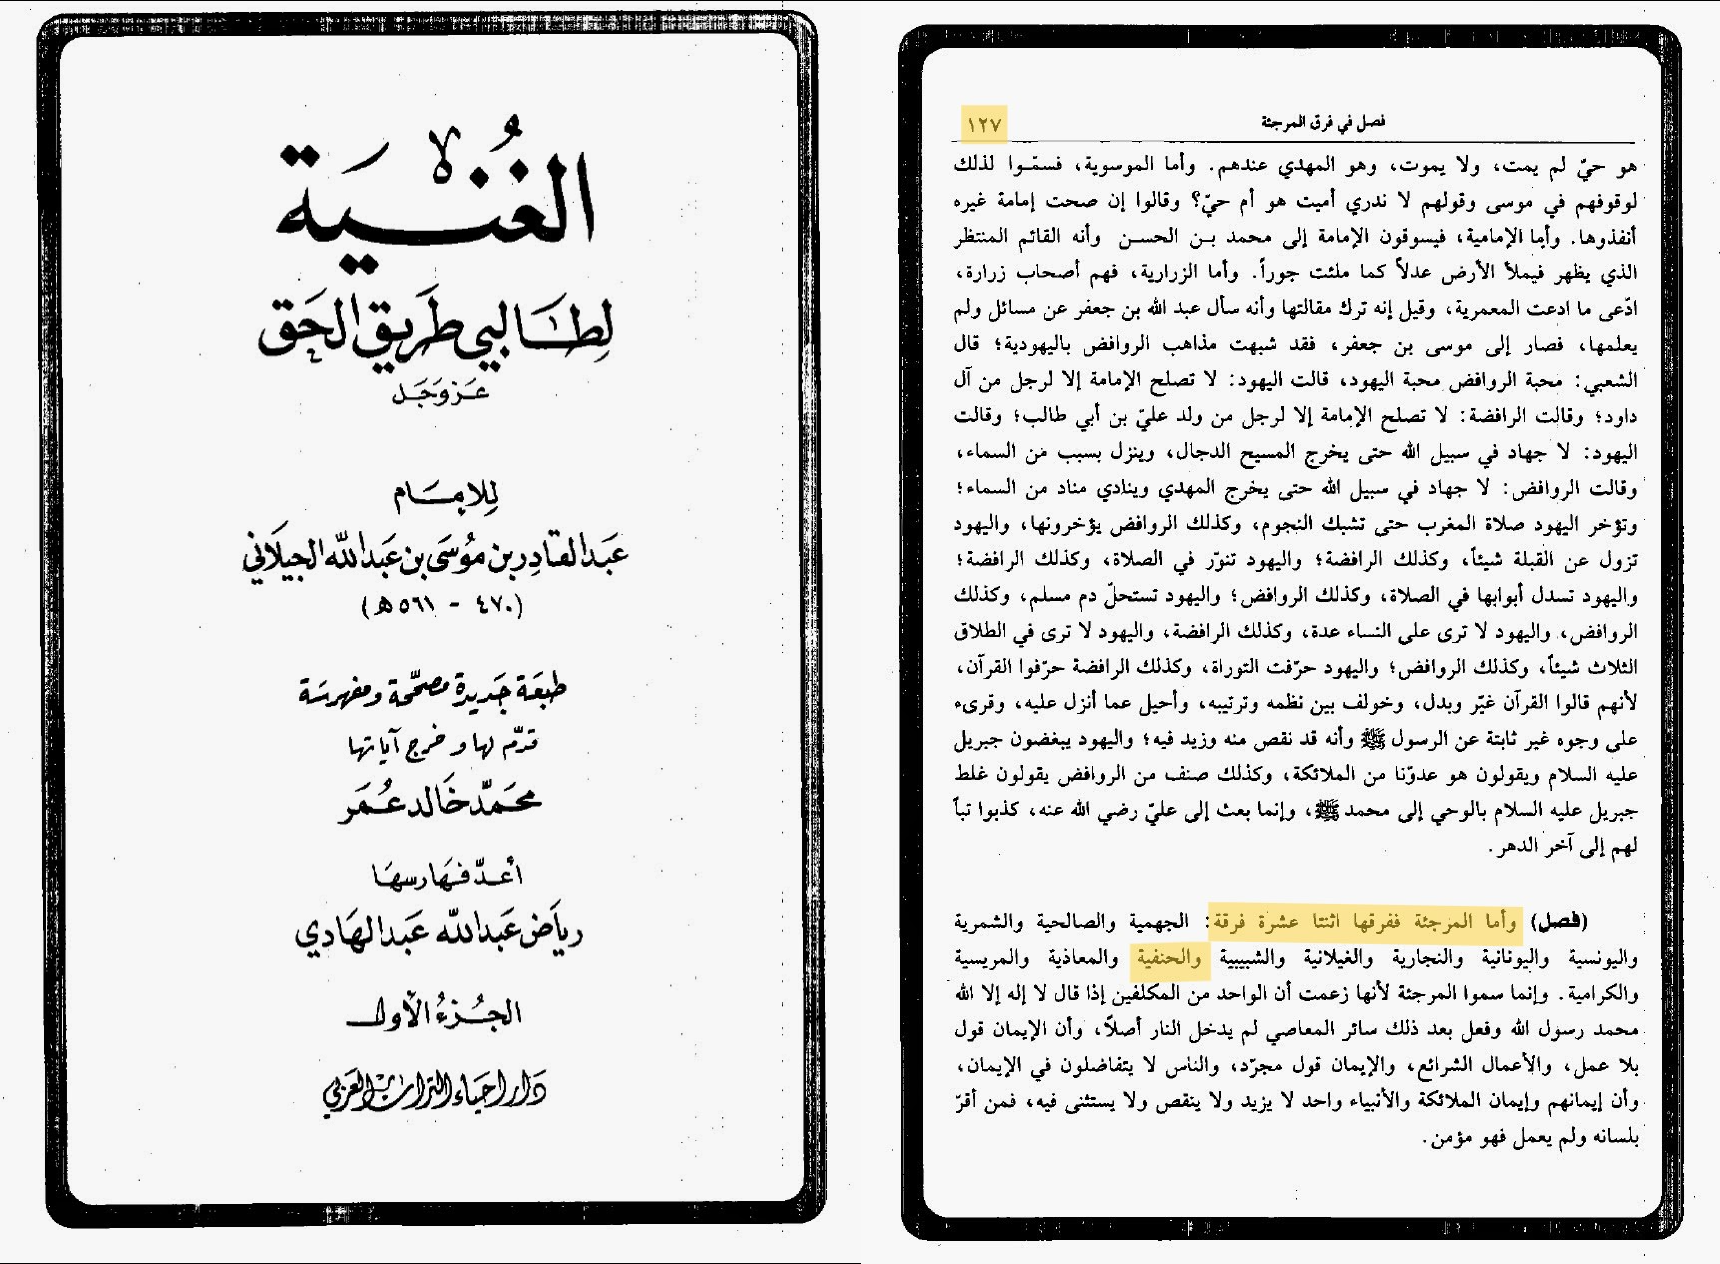 الغُنْيَة
لِطَالِبي طَرِيقِ الحَق
عَزَّ وَجَلّ
لِلإِمَام
عَبدالقَادِر بن مُوسَى بن عَبدالله الجيلَاني
(٤٧٠ - ٥٦١ هـ)
طبعَة جَديدة مصحّحة ومفهرسَة
قدّم لها وخرج آياتها
محَمّد خَالد عُمَر
أعدّ فهَارسهَا
ريَاض عَبدالله عَبدالهَادي
الجُزءُ الأول
دَار احيَاء التراث العَربي
فصل في فرق المرجئة
١٢٧
هو حيّ لم يمت، ولا يموت، وهو المهدي عندهم. وأما الموسوية، فسمّوا لذلك
لوقوفهم في موسى وقولهم لا ندري أميت هو أم حيّ؟ وقالوا إن صحت إمامة غيره
أنفذوها. وأما الإمامية، فيسوقون الإمامة إلى محمد بن الحسن وأنه القائم المنتظر
الذي يظهر فيملأ الأرض عدلاً كما ملئت جوراً. وأما الزرارية، فهم أصحاب زرارة،
ادّعى ما ادعت المعمرية، وقيل إنه ترك مقالتها وأنه سأل عبد الله بن جعفر عن مسائل ولم
يعلمها، فصار إلى موسى بن جعفر، فقد شبهت مذاهب الروافض باليهودية؛ قال
الشعبي: محبة الروافض محبة اليهود، قالت اليهود: لا تصلح الإمامة إلا لرجل من آل
داود؛ وقالت الرافضة: لا تصلح الإمامة إلا لرجل من ولد عليّ بن أبي طالب؛ وقالت
اليهود: لا جهاد في سبيل الله حتى يخرج المسيح الدجال، وينزل بسبب من السماء،
وقالت الروافض: لا جهاد في سبيل الله حتى يخرج المهدي وينادي مناد من السماء؛
وتؤخر اليهود صلاة المغرب حتى تشبك النجوم، وكذلك الروافض يؤخرونها، واليهود
تزول عن القبلة شيئاً، وكذلك الرافضة؛ واليهود تنوّر في الصلاة، وكذلك الرافضة؛
واليهود تسدل أبوابها في الصلاة، وكذلك الروافض؛ واليهود تستحلّ دم مسلم، وكذلك
الروافض، واليهود لا ترى على النساء عدة، وكذلك الرافضة، واليهود لا ترى في الطلاق
الثلاث شيئاً، وكذلك الروافض؛ واليهود حرّفت التوراة، وكذلك الرافضة حرّفوا القرآن،
لأنهم قالوا القرآن غيّر وبدل، وخولف بين نظمه وترتيبه، وأحيل عما أنزل عليه، وقرىء
على وجوه غير ثابتة عن الرسول ﷺ وأنه قد نقص منه وزيد فيه؛ واليهود يبغضون جبريل
عليه السلام ويقولون هو عدوّنا من الملائكة، وكذلك صنف من الروافض يقولون غلط
جبريل عليه السلام بالوحي إلى محمد ﷺ، وإنما بعث إلى عليّ رضي الله عنه، كذبوا تباً
لهم إلى آخر الدهر.
(فصل) وأما المرجئة ففرقها اثنتا عشرة فرقة: الجهمية والصالحية والشمرية
واليونسية واليونانية والنجارية والغيلانية والشبيبية والحنفية والمعاذية والمريسية
والكرامية. وإنما سموا المرجئة لأنها زعمت أن الواحد من المكلفين إذا قال لا إله إلا الله
محمد رسول الله وفعل بعد ذلك سائر المعاصي لم يدخل النار أصلاً، وأن الإيمان قول
بلا عمل، والأعمال الشرائع، والإيمان قول مجرّد، والناس لا يتفاضلون في الإيمان،
وأن إيمانهم وإيمان الملائكة والأنبياء واحد لا يزيد ولا ينقص ولا يستثنى فيه، فمن أقرّ
بلسانه ولم يعمل فهو مؤمن.